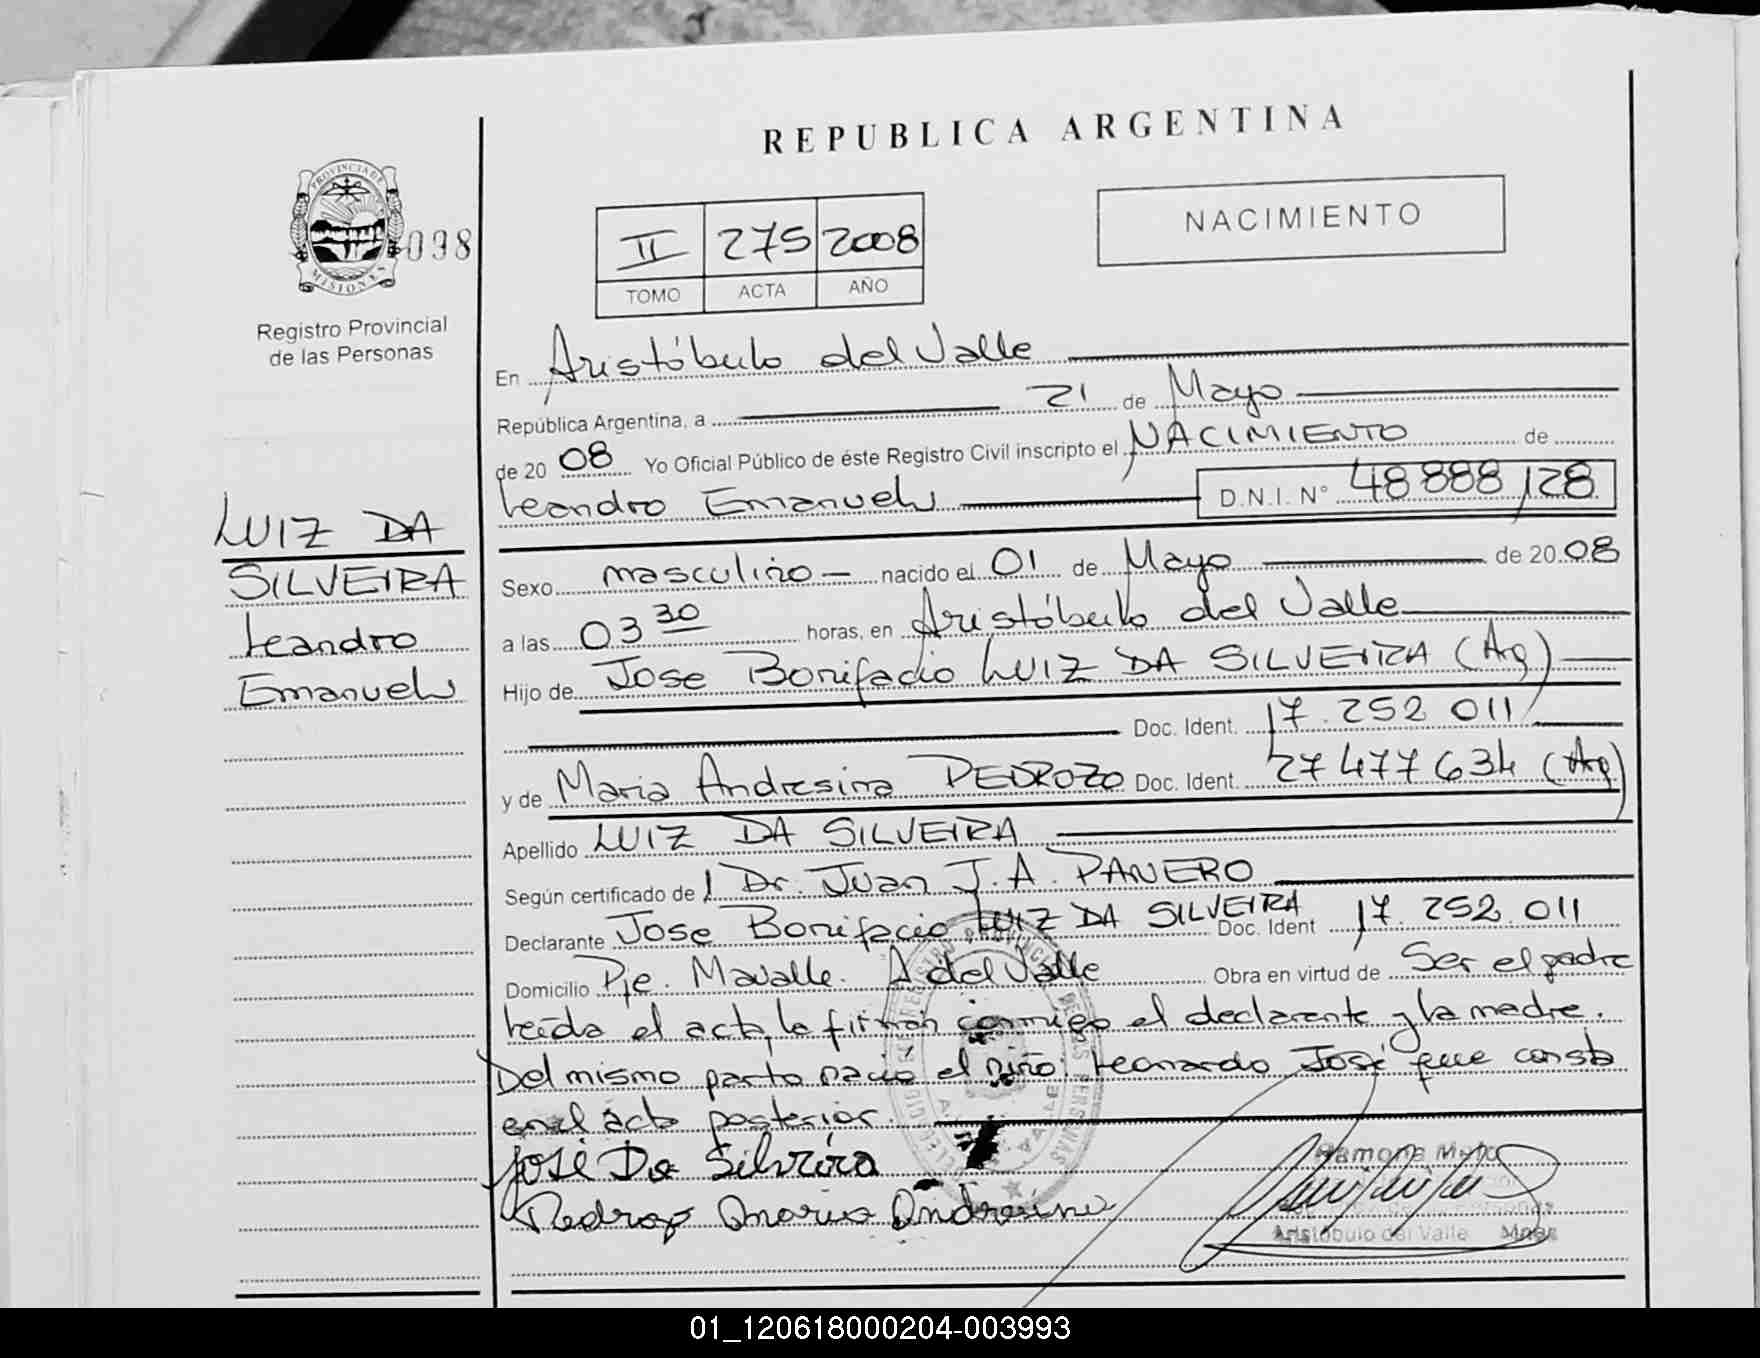 REPUBLICA ARGENTINA
PROVINCIA DE
MISIONES
098
Registro Provincial
de las Personas
II 275 2008
TOMO ACTA AÑO
NACIMIENTO
En Aristóbulo del Valle
República Argentina, a 21 de Mayo
de 20 08 Yo Oficial Público de éste Registro Civil inscripto el NACIMIENTO de
Leandro Emanuel D.N.I. N° 48 888 128
LUIZ DA
SILVEIRA
Leandro
Emanuel
Sexo masculino nacido el 01 de Mayo de 20 08
a las 03 30 horas, en Aristóbulo del Valle
Hijo de Jose Bonifacio LUIZ DA SILVEIRA (Arg)
Doc. Ident. 17.252 011
y de Maria Andresina PEDROZO Doc. Ident. 27 477 634 (Arg)
Apellido LUIZ DA SILVEIRA
Según certificado de Dr. Juan J.A. PANERO
Declarante Jose Bonifacio LUIZ DA SILVEIRA Doc. Ident 17.252.011
Domicilio Pje. Mavalle. A del Valle Obra en virtud de Ser el padre
Leída el acta, la firman conmigo el declarante y la madre.
Del mismo parto nació el niño: Leonardo José que consta
en el acta posterior.
José Da Silveira
Pedrozo Maria Andresina
Ramona
Aristóbulo del Valle Mnes
01_120618000204-003993